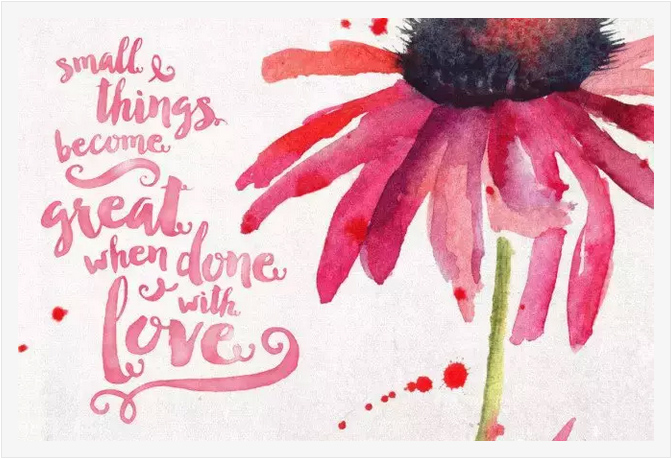 small
things
become
great
when done
with
love